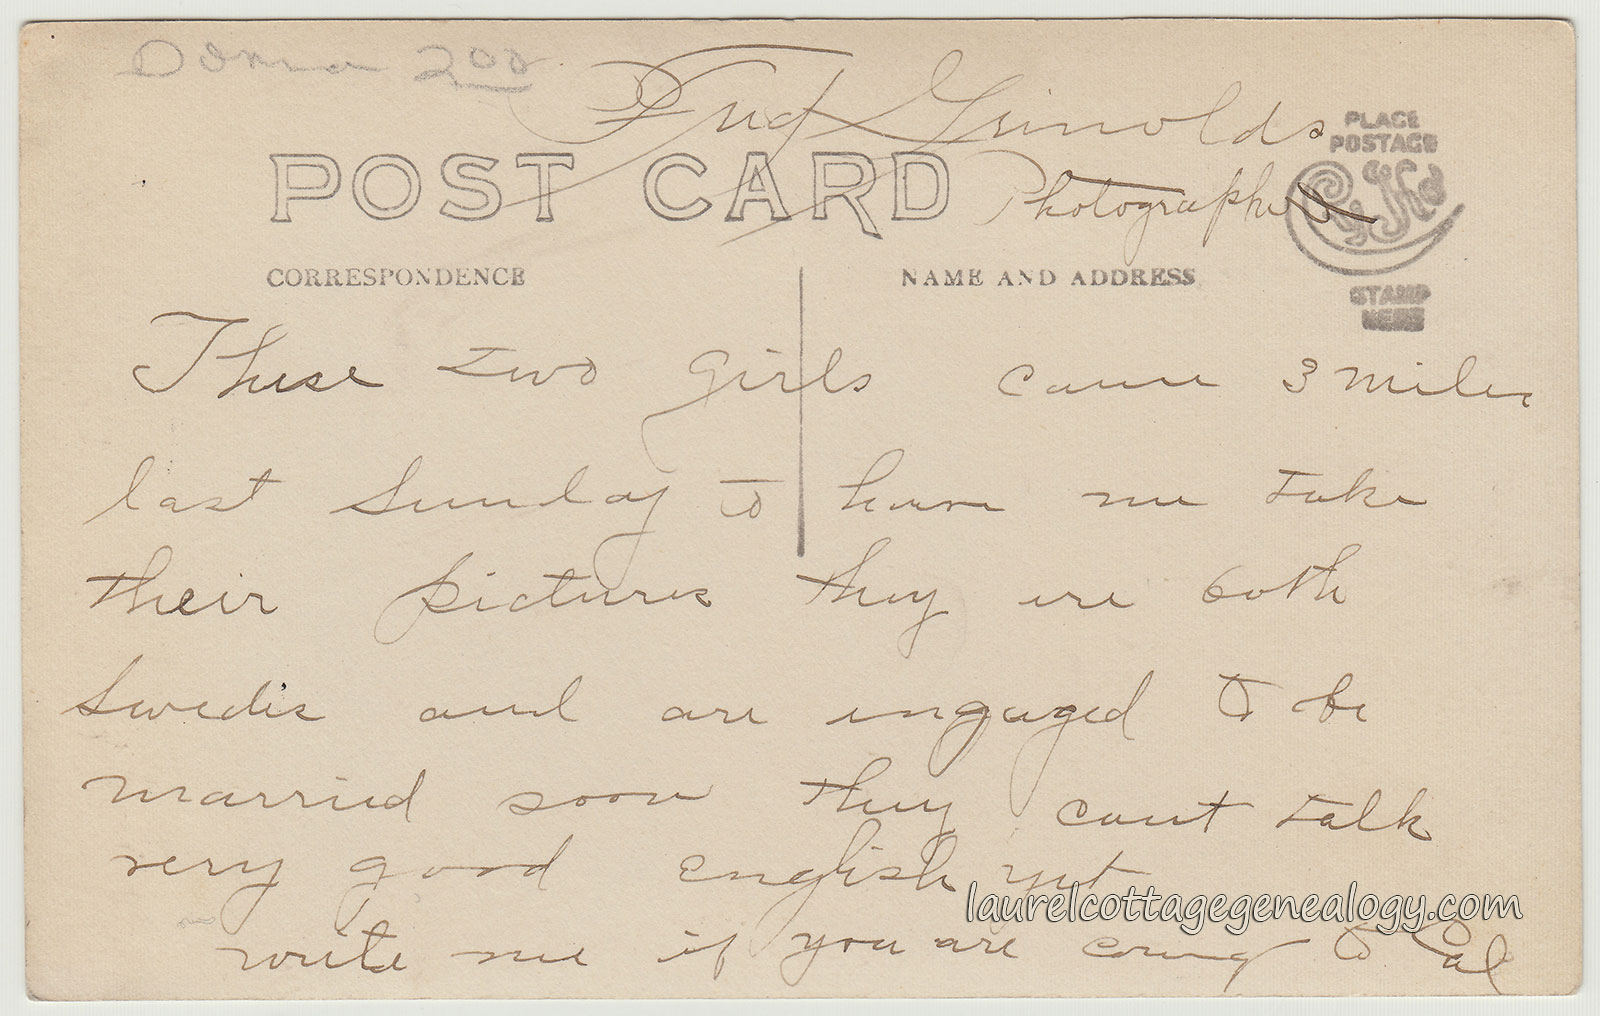 Donna 2 00
Fred Grinolds
POST CARD
Photographer
PLACE
POSTAGE
STAMP
HERE
CORRESPONDENCE
NAME AND ADDRESS
These two girls came 3 miles
last Sunday to have me take
their pictures they are both
Swedes and are engaged to be
married soon they cant talk
very good english yet
write me if you are coming to Cal
laurelcottagegenealogy.com